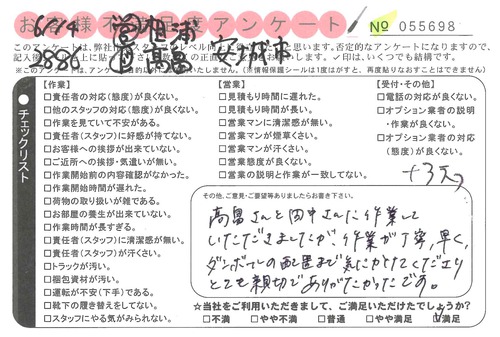 お客様不満足度アンケート
№ 055698
6/14
2886
このアンケートは、弊社
です。否定的なアンケートになりますので、
✓印は、いくつでも結構です。
※このアンケートは、
(※情報保護シールは1度はがすと、再度貼りなおすことはできません)
チェックリスト
【作業】
□責任者の対応(態度)が良くない。
□他のスタッフの対応(態度)が良くない。
□作業を見ていて不安がある。
□責任者(スタッフ)に好感が持てない。
□お客様への挨拶が出来ていない。
□ご近所への挨拶・気遣いが無い。
□作業開始前の内容確認がなかった。
□作業開始時間が遅れた。
□荷物の取り扱いが雑である。
□お部屋の養生が出来ていない。
□作業時間が長すぎる。
□責任者(スタッフ)に清潔感が無い。
□責任者(スタッフ)が汗くさい。
□トラックが汚い。
□梱包資材が汚い。
□運転が不安(下手)である。
□靴下の履き替えをしてない。
□スタッフにやる気がみられない。
【営業】
□見積もり時間に遅れた。
□見積もり時間が長い。
□営業マンに清潔感が無い。
□営業マンが煙草くさい。
□営業マンが汗くさい。
□営業態度が良くない。
□営業の説明と作業が一致してない。
【受付・その他】
□電話の対応が良くない。
□オプション業者の説明
・作業が良くない。
□オプション業者の対応
(態度)が良くない。
+3点
その他、ご意見・ご要望等ありましたらお書き下さい。
高畠さんと田中さんに作業して
いただきましたが、作業が丁寧、早く、
ダンボールの配置まで気にかけてくださり
とても親切でありがたかったです。
☆当社をご利用いただきまして、ご満足いただけたでしょうか?
□不満 □やや不満 □普通 □やや満足 ☑満足